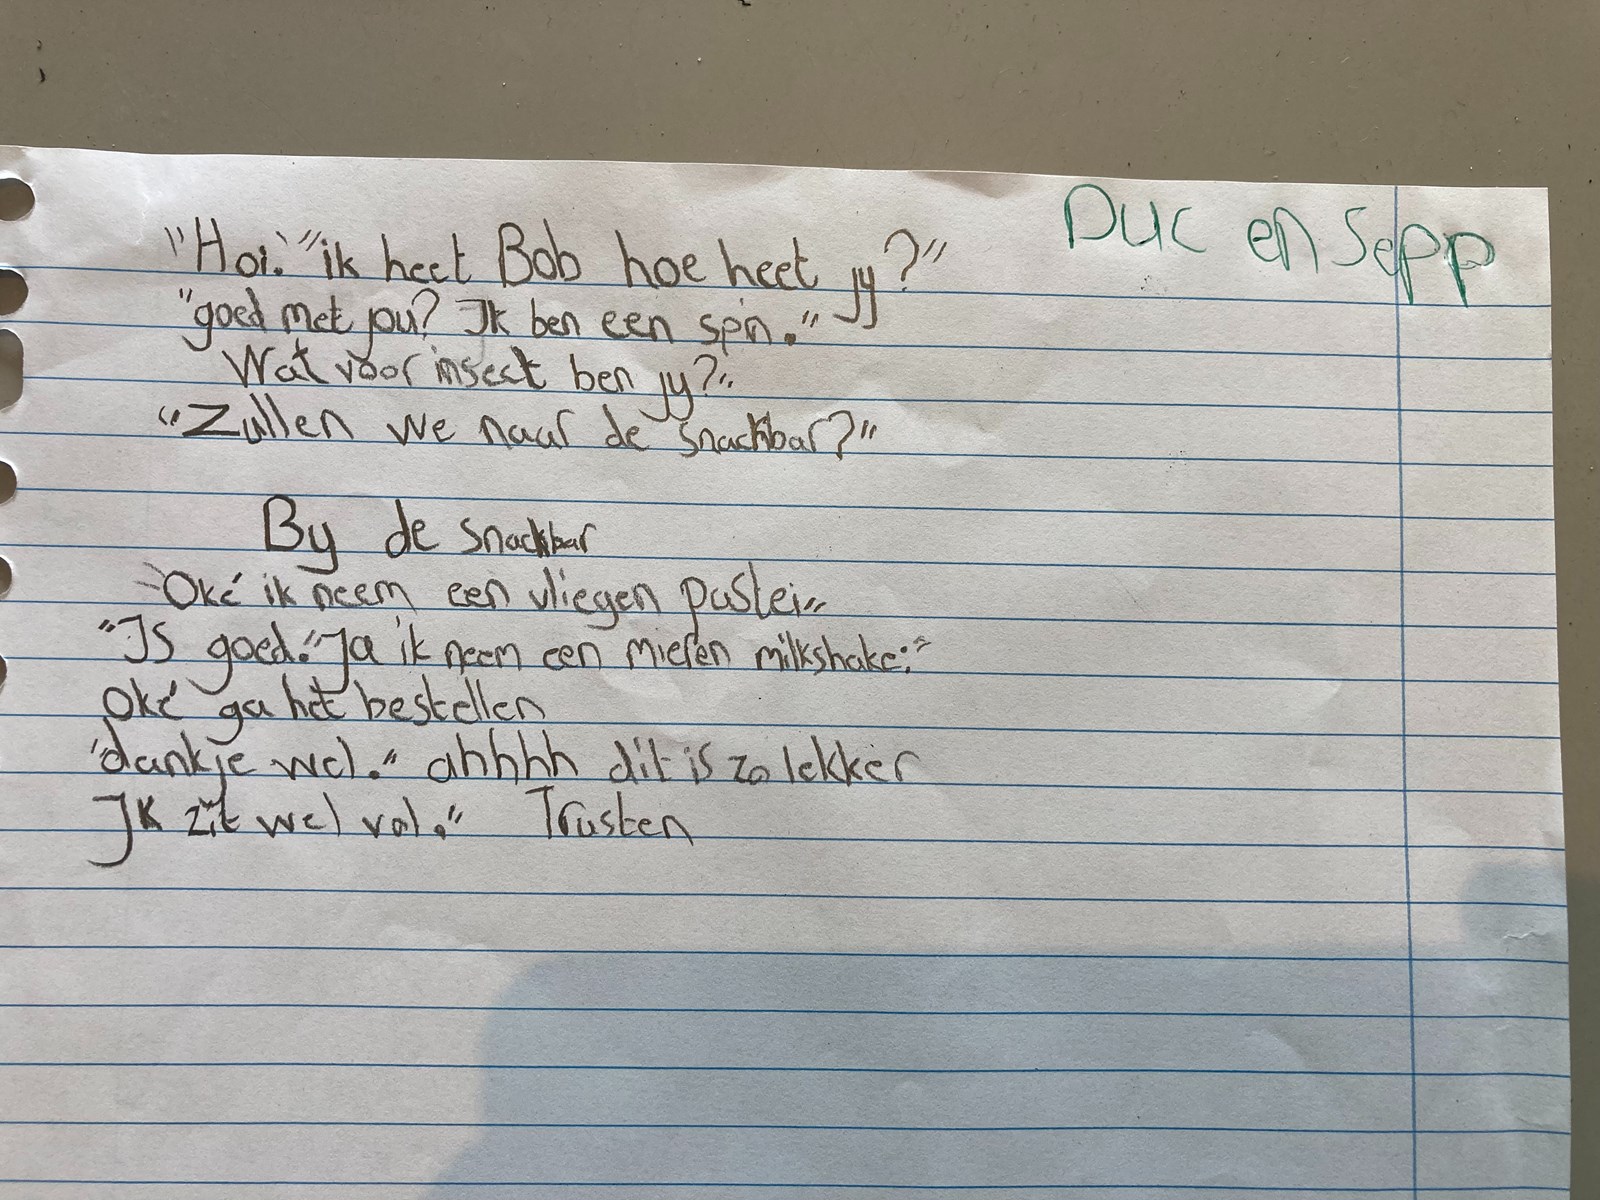 Duc en Sepp
"Hoi." "ik heet Bob hoe heet jy?"
"goed met jou? Ik ben een spin."
Wat voor insect ben jy?"
"Zullen we naar de snackbar?"
By de snackbar
"Oké ik neem een vliegen pastei"
"Is goed." "Ja ik neem een mieren milkshake."
Oké ga het bestellen
"dankje wel." ahhhh dit is zo lekker
Ik zit wel vol." Trusten